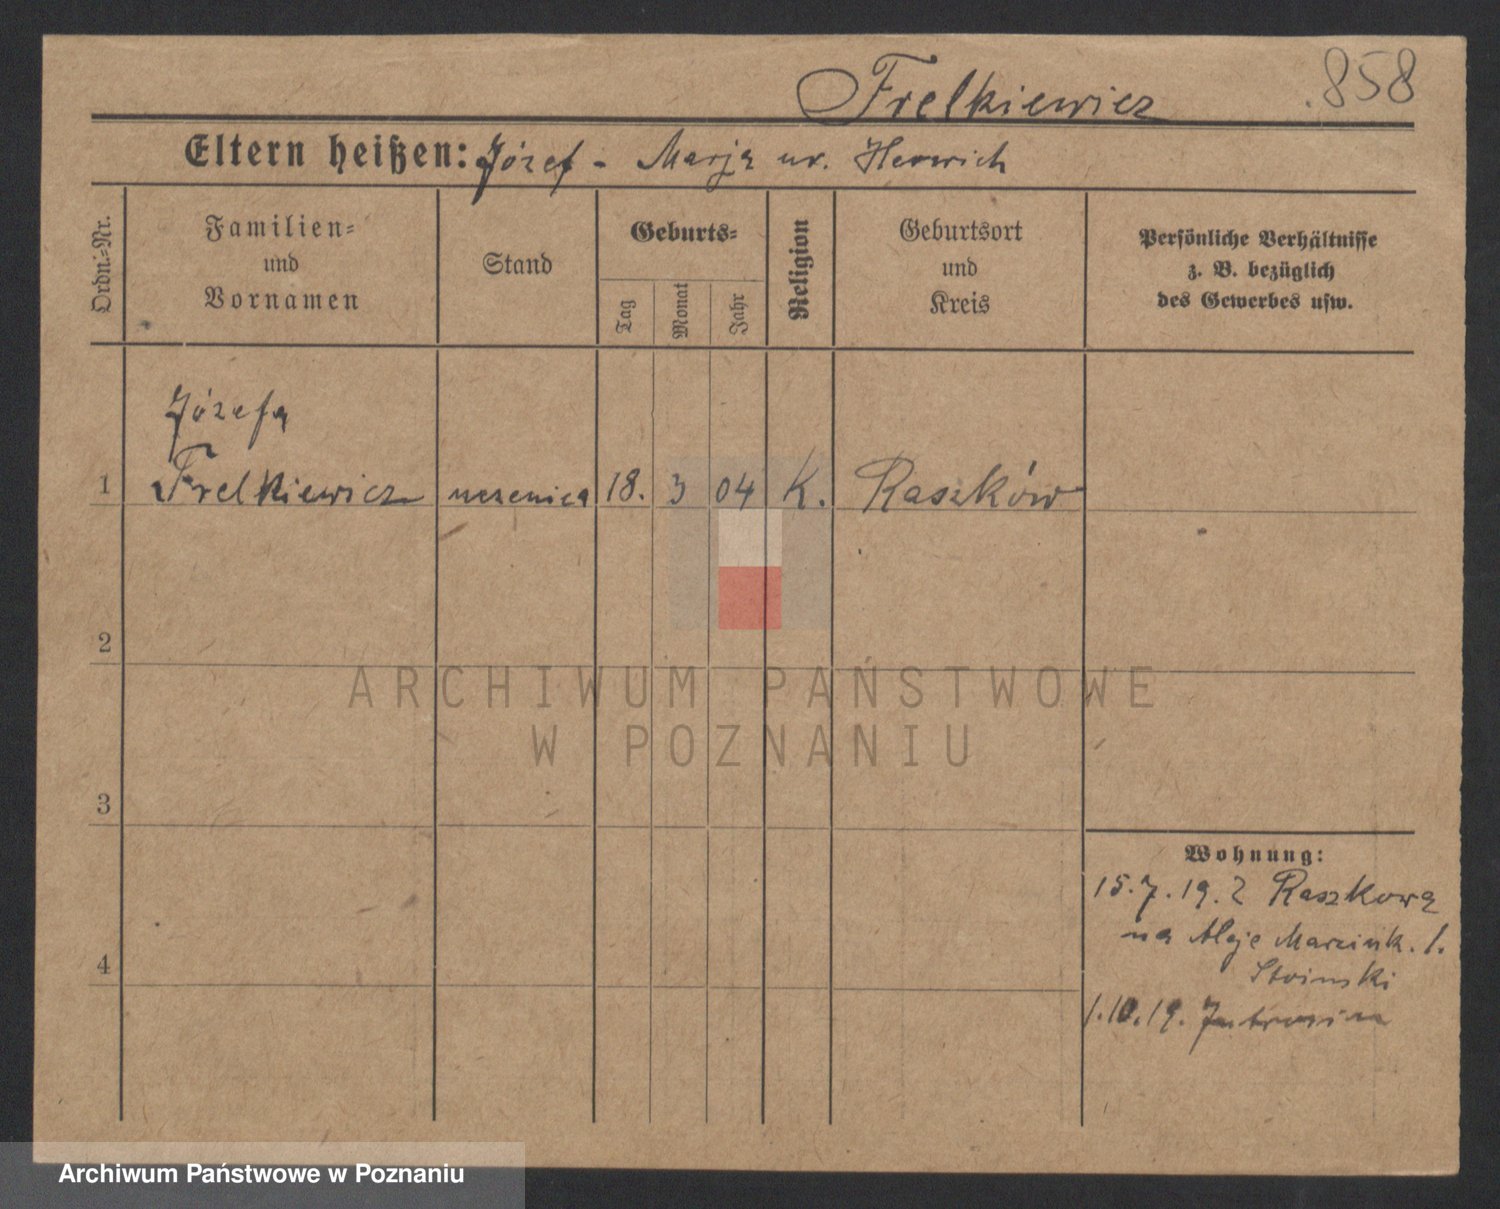 858
Frelkiewicz
Eltern heißen: Józef - Marja ur. Herwich
Ordn.-Nr.
Familien-
und
Vornamen
Stand
Geburts-
Tag
Monat
Jahr
Religion
Geburtsort
und
Kreis
Persönliche Verhältnisse
z. B. bezüglich
des Gewerbes usw.
Józefa
1 Frelkiewicz uczenica 18. 3 04 K. Raszków
2
3
4
ARCHIWUM PAŃSTWOWE
W POZNANIU
Wohnung:
15.7.19. z Raszkowa
na Aleje Marcink. 1.
Stoinski
1.10.19.
Archiwum Państwowe w Poznaniu